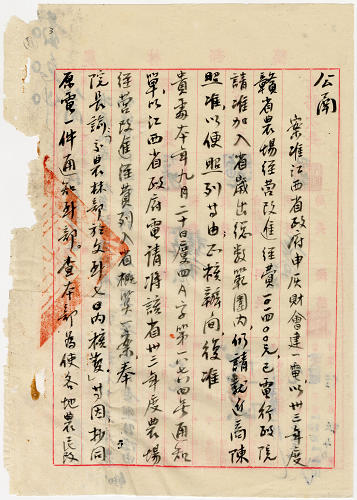 公函
案准江西省政府申灰財會建一電以卅三年度
贛省農場經營改進經費一二四〇〇元已電行政院
請准加入省歲出總數範圍內仍請就近商陳
照准以便照列等由正核辦間復准
貴處本年九月二十日度四A字第一八七六四號通知
單以江西省政府電請將該省卅三年度農場
經營改進經費列入省概算一案奉
院長諭交農林部於文到七日內核覆」等因抄同
原電一件通知到部。查本部為使各地農民改